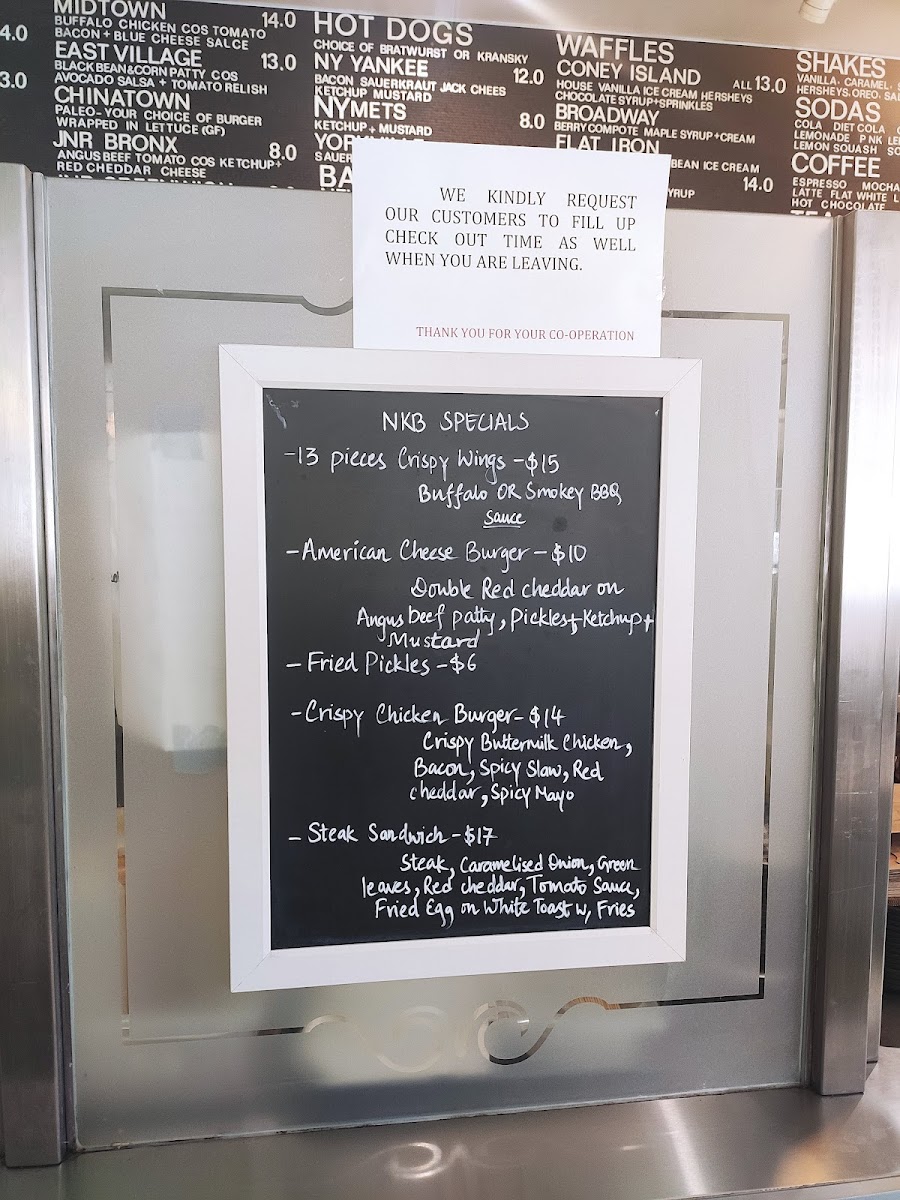 4.0
3.0
MIDTOWN 14.0
BUFFALO CHICKEN COS TOMATO
BACON + BLUE CHEESE SALCE
EAST VILLAGE 13.0
BLACK BEAN&CORN PATTY COS
AVOCADO SALSA + TOMATO RELISH
CHINATOWN
PALEO-YOUR CHOICE OF BURGER
WRAPPED IN LETTUCE (GF)
JNR BRONX 8.0
ANGUS BEEF TOMATO COS KETCHUP+
RED CHEDDAR CHEESE
HOT DOGS
CHOICE OF BRATWURST OR KRANSKY
NY YANKEE 12.0
BACON SAUERKRAUT JACK CHEES
KETCHUP MUSTARD
NYMETS 8.0
KETCHUP + MUSTARD
YOR
SAUER
BA
WAFFLES
CONEY ISLAND ALL 13.0
HOUSE VANILLA ICE CREAM HERSHEYS
CHOCOLATE SYRUP+SPRINKLES
BROADWAY
BERRY COMPOTE MAPLE SYRUP+CREAM
FLAT IRON
BEAN ICE CREAM
YRUP 14.0
SHAKES
VANILLA, CARAMEL,
HERSHEYS, OREO, SA
SODAS
COLA DIET COLA
LEMONADE P NK LE
LEMON SQUASH SO
COFFEE
ESPRESSO MOCHA
LATTE FLAT WHITE L
HOT CHOCOLATE
WE KINDLY REQUEST
OUR CUSTOMERS TO FILL UP
CHECK OUT TIME AS WELL
WHEN YOU ARE LEAVING.
THANK YOU FOR YOUR CO-OPERATION
NKB SPECIALS
-13 pieces Crispy Wings -$15
Buffalo OR Smokey BBQ
Sauce
- American Cheese Burger - $10
Double Red cheddar on
Angus beef patty, Pickles + Ketchup +
Mustard
- Fried Pickles - $6
- Crispy Chicken Burger - $14
Crispy Buttermilk Chicken,
Bacon, Spicy Slaw, Red
cheddar, Spicy Mayo
- Steak Sandwich - $17
Steak, Caramelised Onion, Green
leaves, Red cheddar, Tomato Sauce,
Fried Egg on White Toast w, Fries